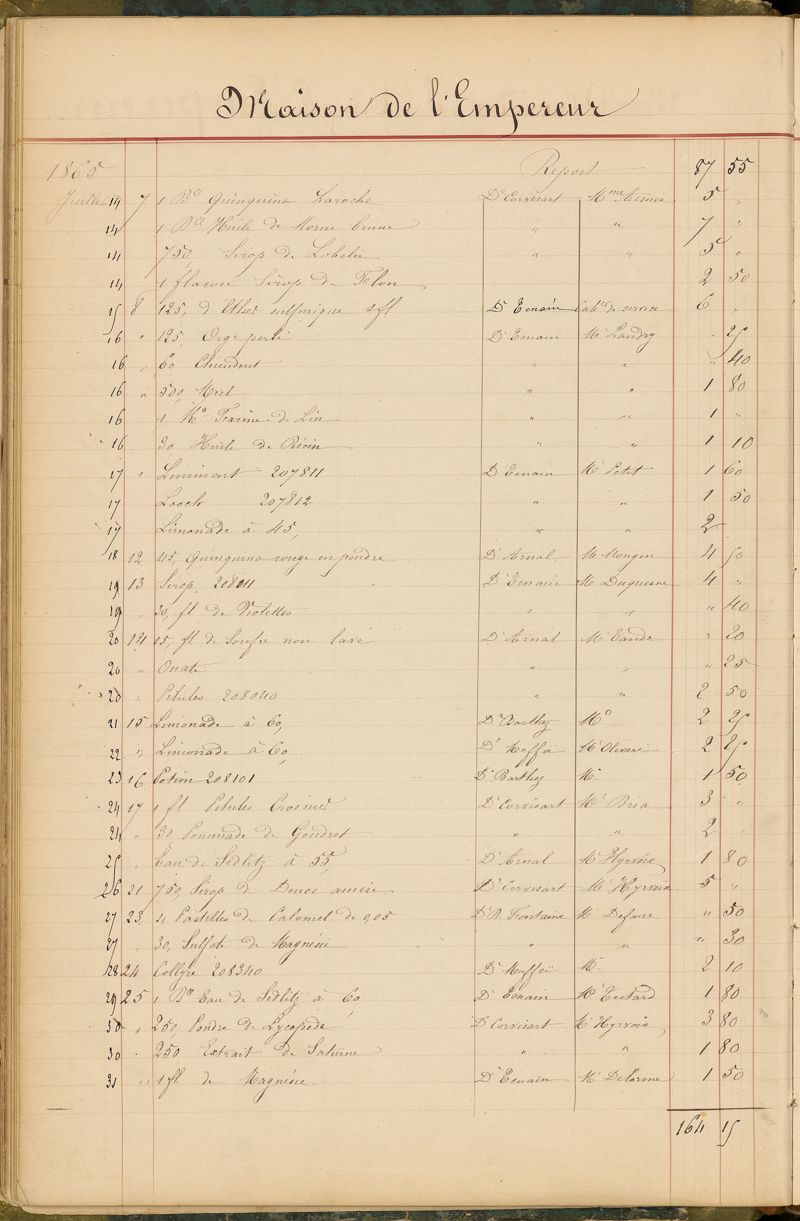 Maison de l'Empereur
1865 Report 87 55
Juillet 14 7 1 Blle Quinquina Laroche Dr Corvisart Mme Aimée 5 "
14 1 Blle Huile de Morue brune " " 7 "
14 750 Sirop de Lobélie " " 5 "
14 1 flacon Sirop de Flon 2 50
15 8 125, d'Ether sulfurique 1 fl Dr Tenain Cabt de service 6 "
16 " 125 Orge perlé Dr Tenain Mr Landry " 25
16 " 60 Chiendent " " " 40
16 " 500, Miel " " 1 80
16 1 Ko Farine de Lin " " 1 "
16 30 Huile de Ricin " " 1 10
17 " Liniment 207811 Dr Tenain Mr Petit 1 60
17 Looch 207812 " " 1 50
17 Limonade à 45, " " 2
18 12 45, Quinquina rouge en poudre Dr Arnal Mr Mongin 4 50
19 13 Sirop 208011 Dr Tenain Mr Duquesne 4 "
19 " 30, fl de Violettes " " " 40
20 14 15, fl de Soufre non lavé Dr Arnal Mr " 20
20 " Ouate " " " 25
20 " Pilules 208040 " " 2 50
21 15 Limonade à 60, Dr Barthez Mo 2 25
22 " Limonade à 60, Dr Mr Olivieri 2 25
23 16 Potion 208101 Dr Barthez Mr 1 50
24 17 1 fl Pilules Crosnier Dr Corvisart Mr Bria 3 "
24 " 30 Pommade de Gondret " " 2 "
25 " Eau de Sedlitz à 55, Dr Arnal Mr Hyrvoix 1 80
26 21 750, Sirop de Douce amère Dr Corvisart Mr Hyrvoix 5 "
27 23 4 Pastilles de Calomel de 0,05 Dr B. Fontaine Mr Defaire " 50
27 " 30, Sulfate de Magnésie " " " 30
28 24 Collyre 208340 Dr Maffei Mr 2 10
29 25 1 Blle Eau de Sedlitz à 60 Dr Tenain Mr Tentard 1 80
30 " 250, Poudre de Lycopode Dr Corvisart Mr Hyrvoix 3 80
30 " 250 Extrait de Saturne " " 1 80
31 " 1 fl de Magnésie Dr Tenain Mr Delorme 1 50
164 15